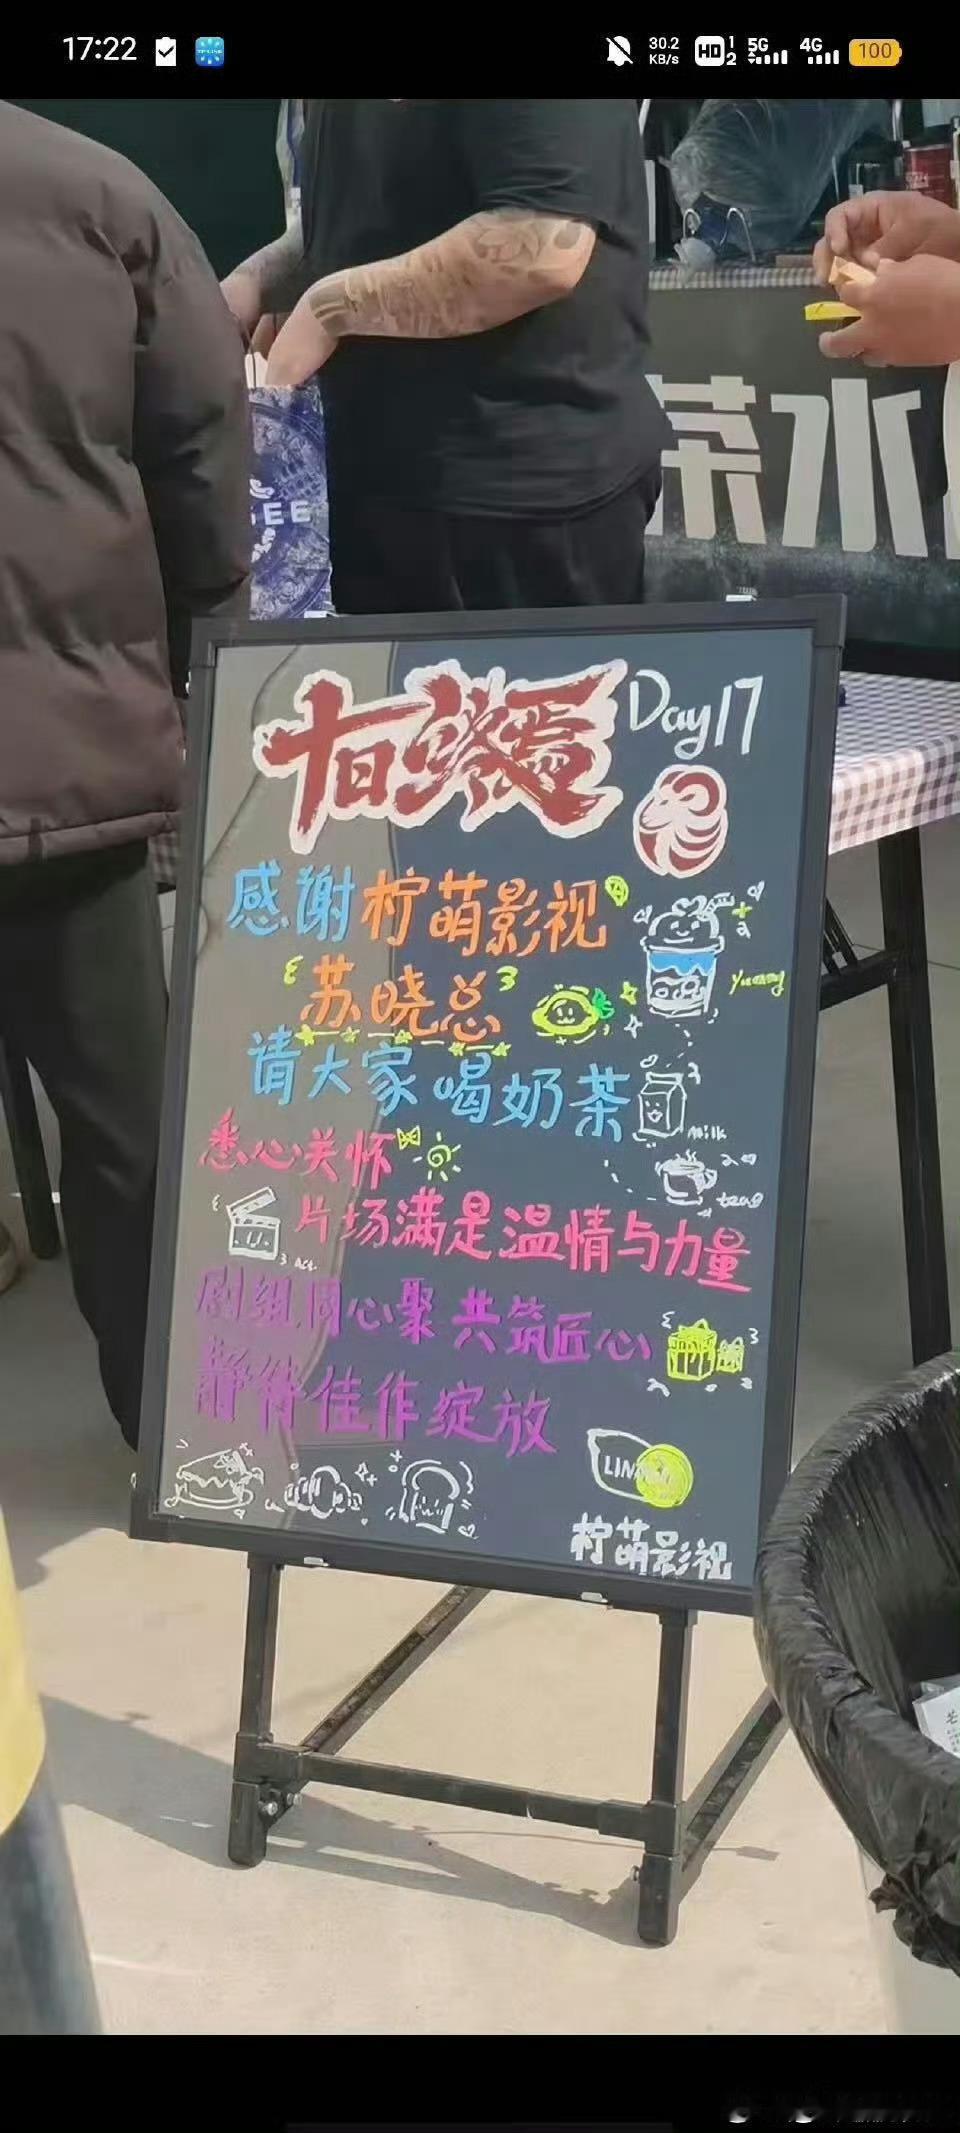 17:22
30.2 KB/s
HD 1 2
5G
4G
100
茶水
十日终焉
Day17
感谢柠萌影视
苏晓总
yummy
请大家喝奶茶
milk
悉心关怀
片场满是温情与力量
剧组同心聚 共筑匠心
静待佳作绽放
柠萌影视